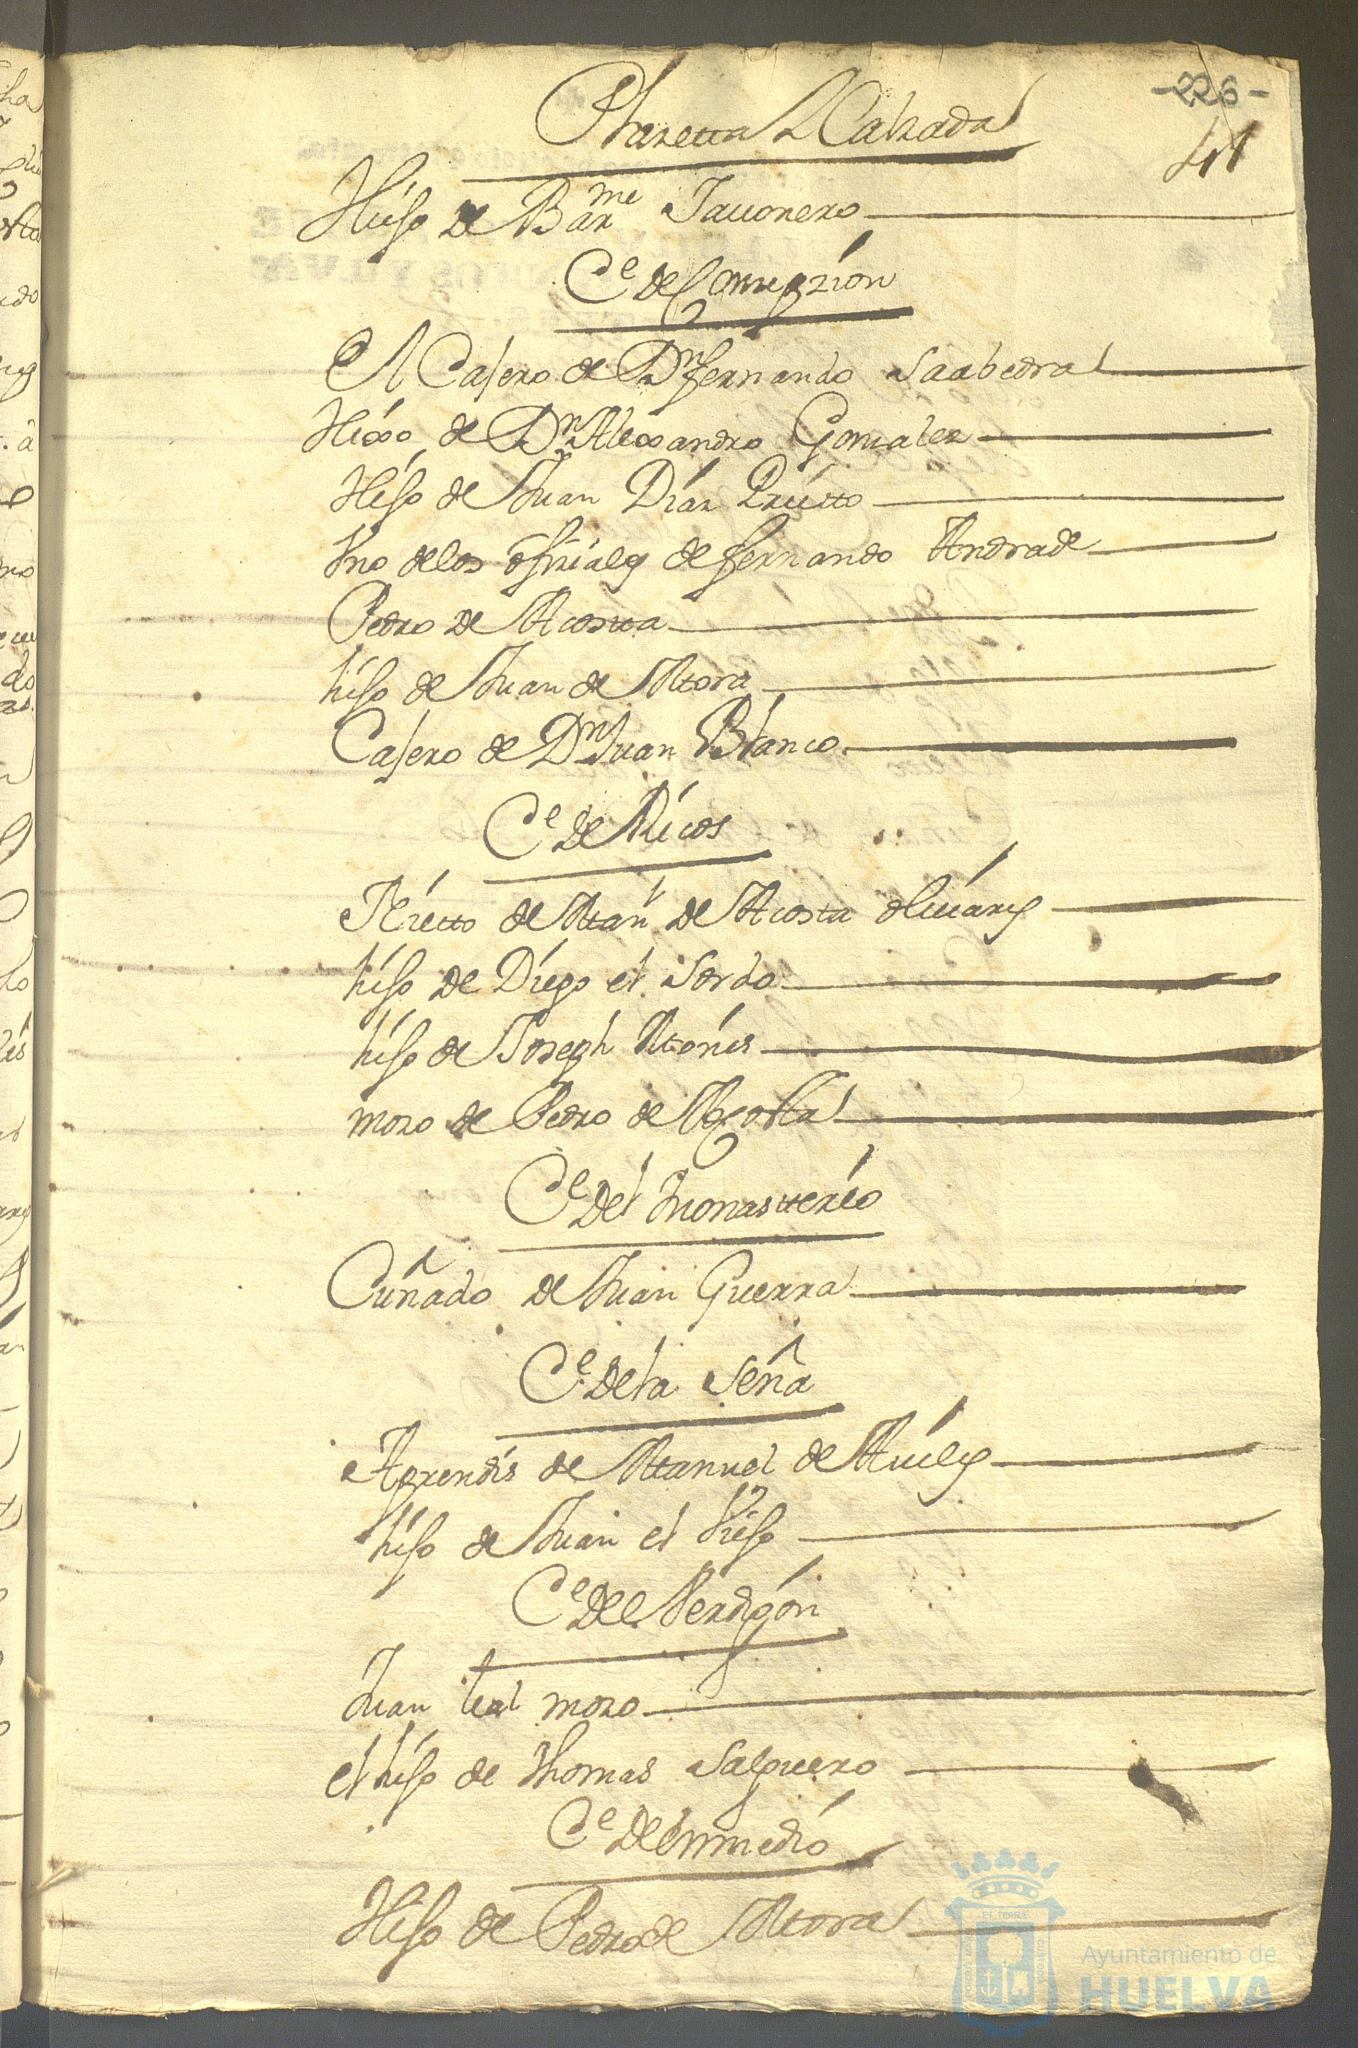 -226-
41
Plazetta Calzada
Hijo de Barme Jauonero
Ce de Conzepzion
El Casero de Dn fernando Saabedra
Hixo de Dn Alexandro Gonzalez
Hijo de Juan Díaz Prietto
Vno de los ofiziales de fernando Andrade
Pedro de Acosta
hijo de Juan de Mora
Casero de Dn Juan Blanco
Ce de Ricos
Nietto de Man de Acosta oliuares
hijo de Diego el Sordo
hijo de Joseph
mozo de Pedro de Acosta
Ce Del Monastterio
Cuñado de Juan Guerra
Ce de la Seña
Aprendis de Manuel de Auiles
hijo de Juan el Viejo
Ce Del Perdigón
Juan Leal mozo
el hijo de Thomas Salguero
Ce De Enmedio
Hijo de Pedro de Mora
Ayuntamiento de
HUELVA